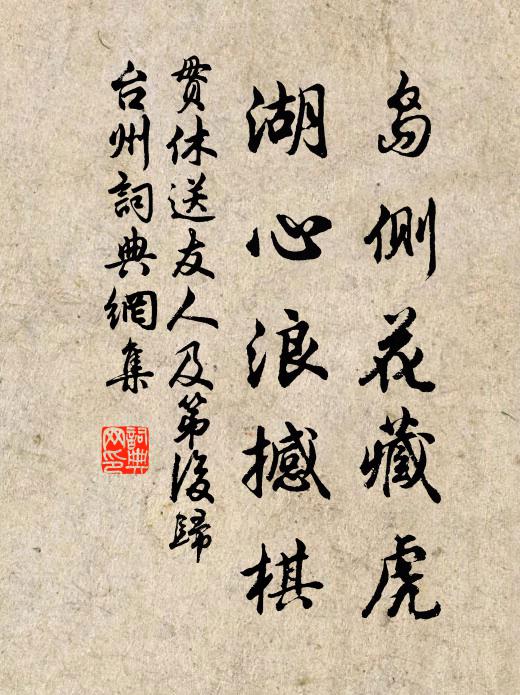 島側花藏虎
湖心浪撼棋
貫休送友人及第後歸
台州詞典網集
詞典
网印